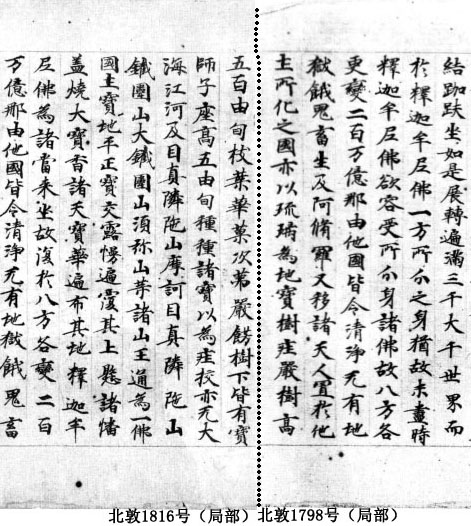 結跏趺坐如是展轉遍滿三千大千世界而
於釋迦牟尼佛一方所分之身猶故未盡時
釋迦牟尼佛欲容受所分身諸佛故八方各
更變二百万億那由他國皆令清淨无有地
獄餓鬼畜生及阿脩羅又移諸天人置於他
土所化之國亦以琉璃為地寶樹莊嚴樹高
五百由旬枝葉華菓次第嚴餝樹下皆有寶
師子座高五由旬種種諸寶以為莊挍亦无大
海江河及目真隣陁山摩訶目真隣陁山
鐵圍山大鐵圍山須弥山等諸山王通為一佛
國土寶地平正寶交露幔遍覆其上懸諸幡
盖燒大寶香諸天寶華遍布其地釋迦牟
尼佛為諸當來坐故復於八方各變二百
万億那由他國皆令清淨无有地獄餓鬼畜
北敦1816号（局部）北敦1798号（局部）